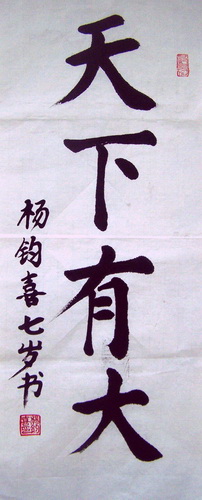 天下有大
杨钧喜七岁书